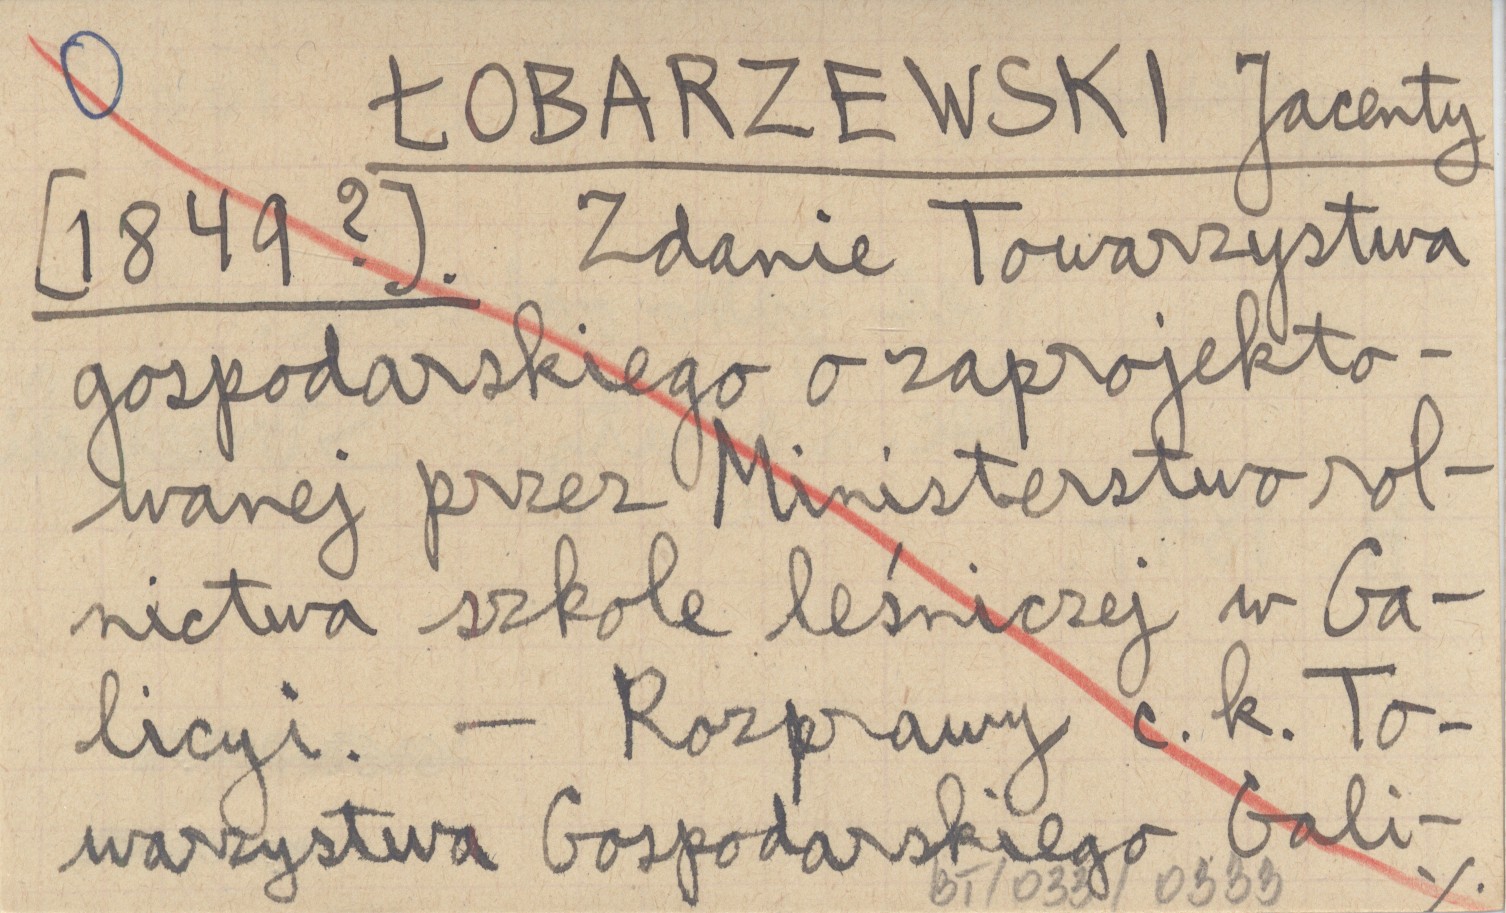 ŁOBARZEWSKI Jacenty
[1849?]. Zdanie Towarzystwa
gospodarskiego o zaprojekto-
wanej przez Ministerstwo rol-
nictwa szkole leśniczej w Ga-
licyi. — Rozprawy c. k. To-
warzystwa Gospodarskiego Gali-
BT/033/0333 ./.